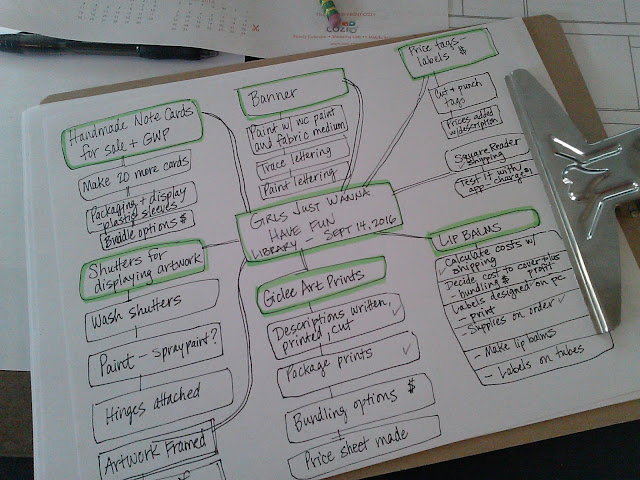 Handmade Note Cards
for sale + GWP
Make 20 more cards
Packaging + display
- plastic sleeves
Bundle options $
Shutters for
displaying artwork
Wash shutters
Paint - spraypaint?
Hinges attached
Artwork Framed
of
Banner
Paint w/ wc paint
and fabric medium
Trace lettering
Paint lettering
GIRLS JUST WANNA
HAVE FUN
LIBRARY - SEPT 14, 2016
Giclee Art Prints
Descriptions written,
printed, cut
Package prints
Bundling options $
Price sheet made
Price tags,
labels $
Cut + punch
tags
Prices added
w/discription
Square Reader
shipping
Test it with
app - charge
LIP BALMS
Calculate costs w/
shipping
Decide cost to cover plus
- bundling $ profit
Labels designed on pc
- print
- Supplies on order
- Make lip balms
- Labels on tubes